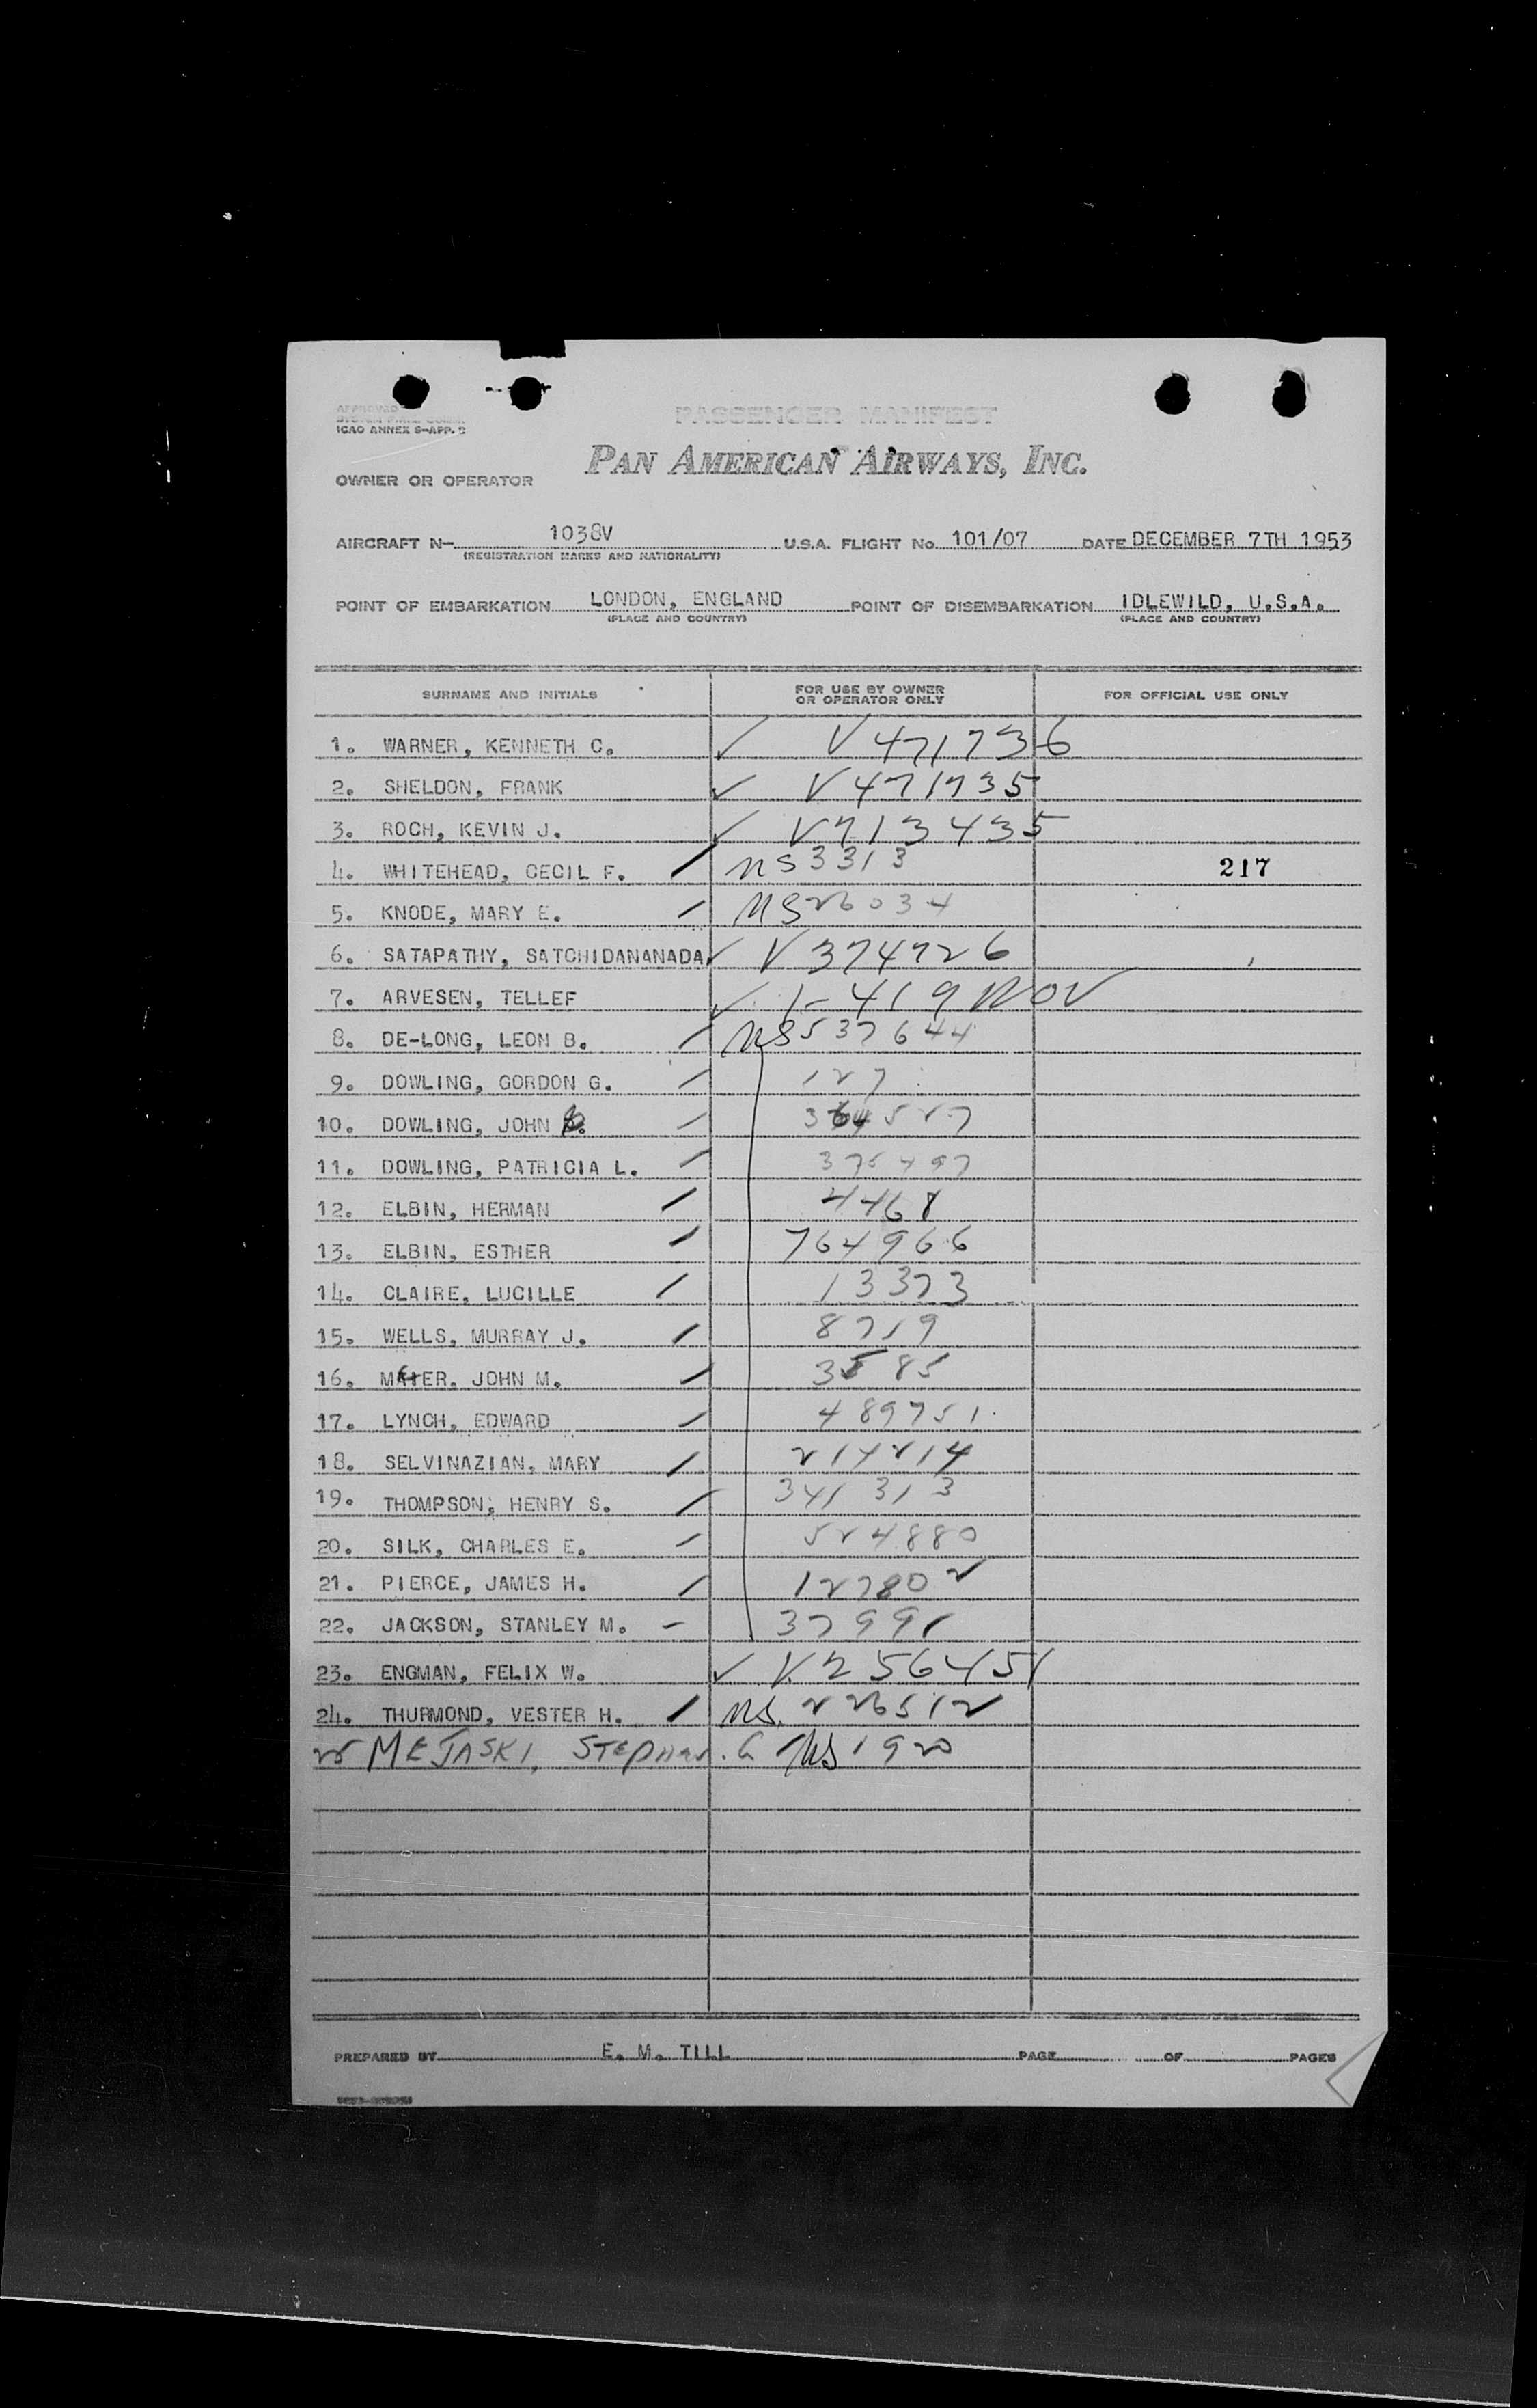 PASSENGER MANIFEST
ICAO ANNEX 9-APP.
PAN AMERICAN AIRWAYS, INC.
OWNER OR OPERATOR
AIRCRAFT N- 1038V U.S.A. FLIGHT No. 101/07 DATE DECEMBER 7TH 1953
(REGISTRATION MARKS AND NATIONALITY)
POINT OF EMBARKATION LONDON, ENGLAND POINT OF DISEMBARKATION IDLEWILD, U.S.A.
(PLACE AND COUNTRY) (PLACE AND COUNTRY)
SURNAME AND INITIALS FOR USE BY OWNER OR OPERATOR ONLY FOR OFFICIAL USE ONLY
1. WARNER, KENNETH C. ✓ V471736
2. SHELDON, FRANK ✓ V471735
3. ROCH, KEVIN J. ✓ V713435
4. WHITEHEAD, CECIL F. / NS3313 217
5. KNODE, MARY E. / NS26034
6. SATAPATHY, SATCHIDANANADA ✓ V374726
7. ARVESEN, TELLEF ✓ 1-419 NOV
8. DE-LONG, LEON B. / NS537644
9. DOWLING, GORDON G. / 127
10. DOWLING, JOHN / 364527
11. DOWLING, PATRICIA L. / 375497
12. ELBIN, HERMAN / 4468
13. ELBIN, ESTHER / 764966
14. CLAIRE, LUCILLE / 13373
15. WELLS, MURRAY J. / 8719
16. JOHN M. / 3585
17. LYNCH, EDWARD / 489751
18. SELVINAZIAN, MARY / 214214
19. THOMPSON, HENRY S. / 341313
20. SILK, CHARLES E. / 524880
21. PIERCE, JAMES H. / 127802
22. JACKSON, STANLEY M. - 37991
23. ENGMAN, FELIX W. ✓ V.256451
24. THURMOND, VESTER H. / NS. 226512
25 MEJASKI, STEPHAN. G NS1920
PREPARED BY E. M. TILL PAGE OF PAGES